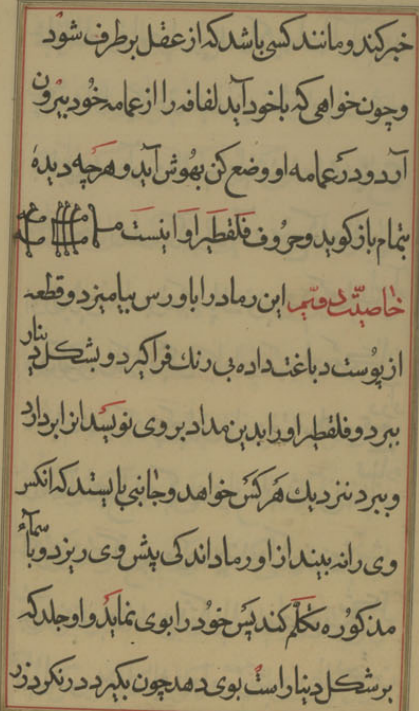 خبر کند و مانند کسی باشد که از عقل بر طرف شود
و چون خواهی که باخود آید لفافه را از عمامه خود بیرون
آرد و در عمامه او وضع کن بهوش آید و هرچه دیده
بتمام باز کوید و حروف فلقطیر او اینست
خاصیّت دویّم این رماد را با ورس بیامیزد و قطعه
از پوست دباغت داده بی رنك فرا کیرد و بشکل دینار
ببرد و فلقطیر او را بدین مداد بر وی نویسد انرا بردارد
و ببرد نزدیك هر کس خواهد و جانبی بایستد که انکس
وی را نه بیند از او رماد اندکی پیش وی ریزد و باسماء
مذکوره تکلّم کند پس خود را بوی نماید و او جلد که
بر شکل دینار است بوی دهد چون بکیرد در نکرد زر